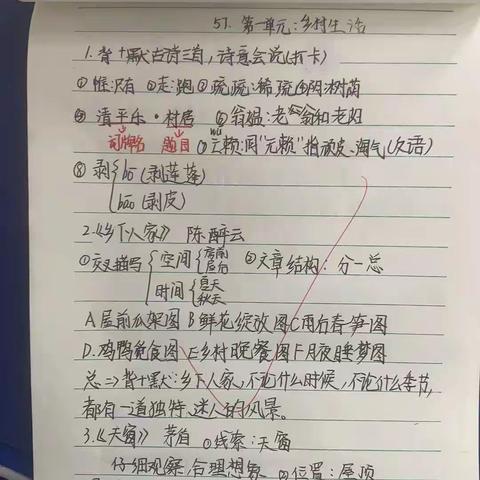 51. 第一单元:乡村生活
1.背+默古诗三首,诗意会说(打卡)
①惟:只有 ②走:跑 ③疏疏:稀疏 ④阴:树荫
⑤清平乐·村居 ⑥翁媪:老翁和老妇
词牌名 题目 wú
⑦亡赖:同“无赖”指顽皮、淘气(欢语)
⑧剥 bō(剥莲蓬)
bāo(剥皮)
2.《乡下人家》 陈醉云
①交叉描写 空间 房前 屋后 ②文章结构:分一总
时间 夏天 秋天
A.屋前瓜架图 B鲜花绽放图 C雨后春笋图
D.鸡鸭觅食图 E乡村晚餐图 F月夜睡梦图
总=>背+默:乡下人家,不论什么时候,不论什么季节,
都有一道独特、迷人的风景。
3.《天窗》 茅盾 ①线索:天窗
仔细观察 合理想象 ②位置:屋顶